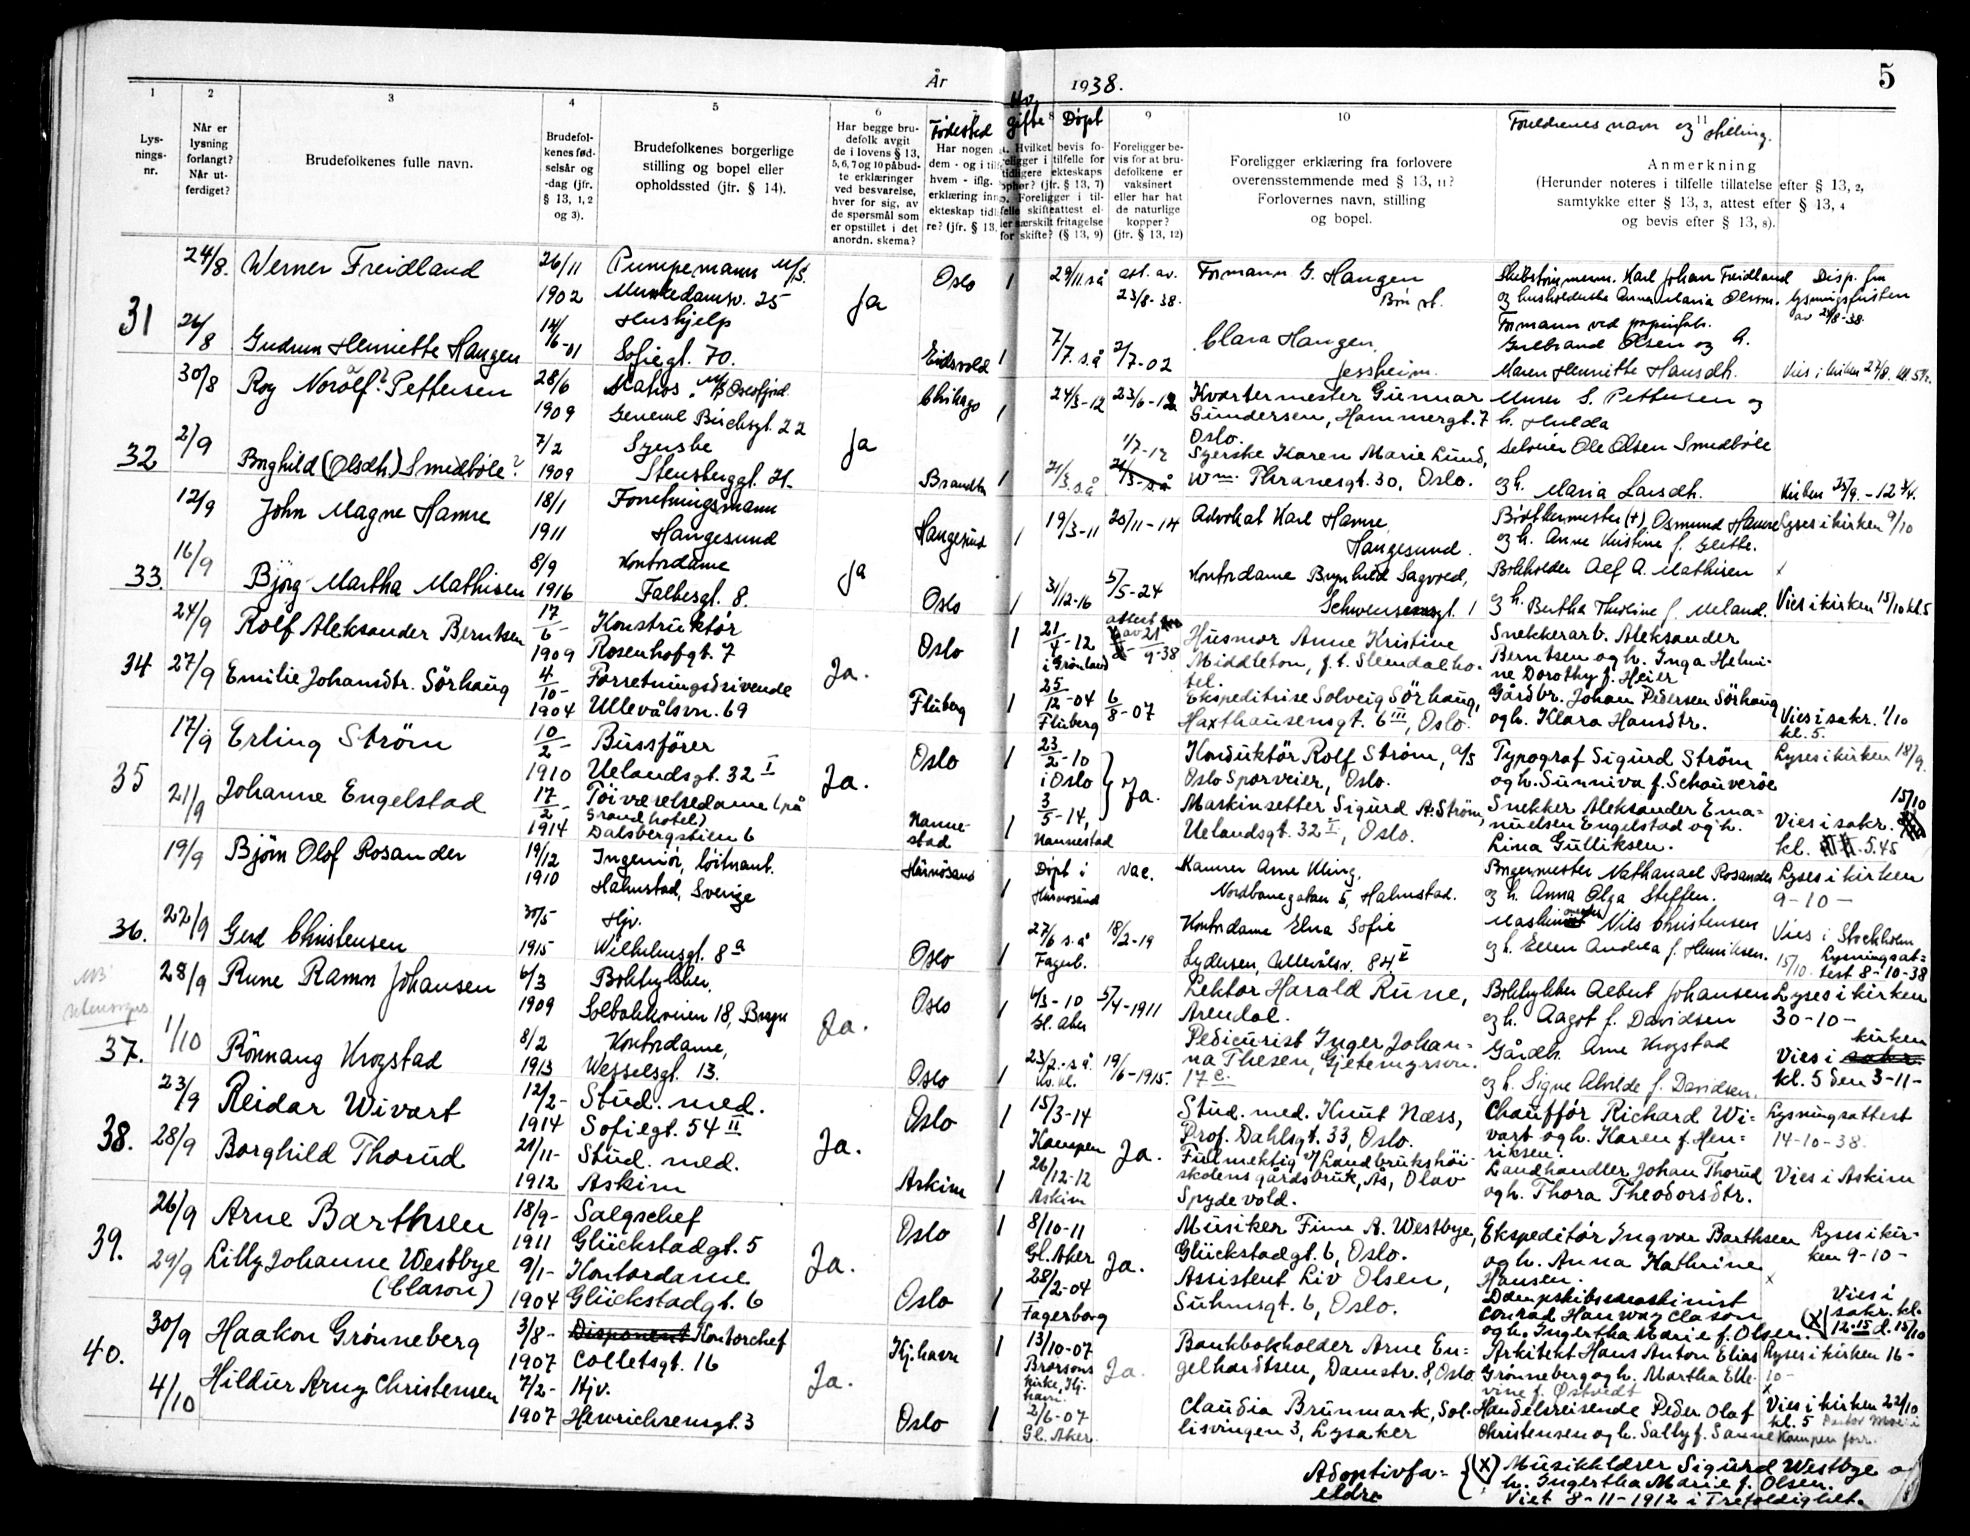 År 1938. 5
1 2 3 4 5 6 8 9 10 11
Lys-
nings-
nr.
Når er
lysning
forlangt?
Når ut-
ferdiget?
Brudefolkenes fulle navn.
Brudefol-
kenes fød-
selsår og
-dag (jfr.
§ 13, 1, 2
og 3).
Brudefolkenes borgerlige
stilling og bopel eller
opholdssted (jfr. § 14).
Har begge bru-
defolk avgit
de i lovens § 13,
5, 6, 7 og 10 påbud-
te erklæringer
ved besvarelse,
hver for sig, av
de spørsmål som
er opstillet i det
anordn. skema?
Fødested
Har nogen
dem - og i
hvem - iflg.
erklæring
ekteskap tid
re? (jfr. § 13,
gifte Døpt
Hvilket bevis fo-
religger i tilfelle for
tidligere ekteskaps
ophør? (jfr. § 13, 7)
Foreligger i til-
felle skifteattest el-
ler særskilt fritagelse
for skifte? (§ 13, 9)
Foreligger be-
vis for at bru-
defolkene er
vaksinert
eller har hat
de naturlige
kopper?
(jfr. § 13, 12)
Foreligger erklæring fra forlovere
overensstemmende med § 13, 11?
Forlovernes navn, stilling
og bopel.
Foreldrenes navn og stilling.
Anmerkning
(Herunder noteres i tilfelle tillatelse efter § 13, 2,
samtykke efter § 13, 3, attest efter § 13, 4
og bevis efter § 13, 8).
31 24/8. Werner Freidland 26/11 1902 Pumpemann M/S. Munkedamsv. 25 Ja Oslo 1 29/11 s.å att. av 23/8-38. Formann G. Haugen
Karl Johan Freidland og husholderske Anna Maria Olsen. Disp. fra lysningsfristen av 24/8-38.
26/8 Gudrun Henriette Haugen 14/6-01 Hushjelp Sofiegt. 70. Eidsvold 1 7/7. s.å 2/7-02 Clara Haugen, Jessheim.
Formann ved papirfabr. Gulbrand Olsen og Maren Henriette Hansdh. Vies i kirken 27/8. kl. 5½.
32 30/8 Roy Norolf? Pettersen 28/6 1909 Matros. General Birchsgt. 22 Ja Chikago 1 24/3-12 23/6-12 Kvartermester Gunnar Gundersen, Hammergt. 7 Oslo.
Murer S. Pettersen og h. Hulda
2/9 Borghild (Olsdh.) Smedbøle? 7/2 1909 Syerske Stensberggt. 21. Brandbu 1 21/3. s.å 1/7-12 21/3-s.å Syerske Karen Marie Lund, Wm. Thranesgt. 30, Oslo.
Selveier Ole Olsen Smedbøle og h. Maria Larsdh. Kirken 25/9. - 12¾.
33. 12/9 John Magne Hamre 18/1 1911 Forretningsmann Haugesund Ja Haugesund 1 19/3-11 20/11-14 Advokat Karl Hamre, Haugesund.
Bødtkermester (+) Osmund Hamre og h. Anne Kristine f. Glette. Lyses i kirken 9/10
16/9 Bjørg Martha Mathisen 8/9 1916 Kontordame Falbesgt. 8. Oslo 1 31/12-16 5/5-24 Kontordame Brynhild Sagvold, Schwensensgt. 1
Bokholder Alf A. Mathisen og h. Bertha Thorline f. Meland. x Vies i kirken 15/10 kl. 5
34 24/9 Rolf Aleksander Berntsen 17/6- 1909 Konstruktør Rosenhofgt. 7 Ja. Oslo 1 21/4-12 i Grønland attest av 21/9-38 Husmor Anne Kristine Middleton, f. t. Slendalhotel.
Snekkerarb. Aleksander Berntsen og h. Inga Helmine Dorothy f. Heier
27/9 Emilie Johansdtr. Sörhaug 4/10- 1904 Forretningsdrivende Ullevålsvn. 69 Fluberg 1 25/12-04 Fluberg 6/8-07 Ekspeditrise Solveig Sörhaug, Haxthausensgt. 6 III, Oslo.
Gårdbr. Johan Pedersen Sörhaug og h. Klara Hansdtr. Vies i sakr. 1/10 kl. 5.
35 17/9 Erling Strøm 10/2- 1910 Bussfører Uelandsgt. 32 I Ja. Oslo 1 23/2-10 i Oslo Ja. Konduktör Rolf Strøm, A/S Oslo Sporveier, Oslo.
Typograf Sigurd Strøm og h. Sunniva f. Schauveröe Lyses i kirken 18/9.
21/9 Johanne Engelstad 17/2- 1914 Töiværelsedame (på Grand hotel) Dalsbergstien 6 Nannestad 1 3/5-14, Nannestad Maskinsetter Sigurd A. Strøm, Uelandsgt. 32 I, Oslo.
Snekker Aleksander Emanuelsen Engelstad og h. Lina Gulliksen. Vies i sakr. 15/10 kl. 5.45
36. 19/9 Bjørn Olof Rosander 19/12 1910 Ingeniør, löitnant. Halmstad, Sverige Härnösand 1 Døpt i Härnösand vac. Kamrer Arne Kling. Nordbanegatan 5, Halmstad.
Borgermester Nathanael Rosander og h. Anna Olga Steffen. Lyses i kirken 9-10-
22/9 Gerd Christensen 30/5 1915 Hjv. Wilhelmsgt. 8 a Oslo 1 27/6 s.å Fagerb. 18/2-19 Kontordame Elna Sofie Lydersen, Ullevålsv. 84 V
Nils Christensen og h. Ellen Andrea f. Henriksen. Vies i Stockholm 15/10. Lysningsattest 8-10-38
NB
37. 28/9 Rune Ramm Johansen 6/3 1909 Boktrykker, Solbakkveien 18, Bryn Ja. Oslo 1 6/3-10 Gl. Aker 5/4-1911 Lektor Harald Rune, Arendal.
Boktrykker Albert Johansen og h. Aagot f. Davidsen Lyses i kirken 30-10-
1/10 Rönnaug Krogstad 8/2 1913 Kontordame, Wesselsgt. 13. Oslo 1 23/2. s.å. 19/6-1915. Pedicurist Inger Johanna Thesen, Gjetemyrsvn. 17 c.
Gårdbr. Arne Krogstad og h. Signe Alvilde f. Davidsen. Vies i sakr. kirken kl. 5 den 3-11-
38. 23/9 Reidar Wivart 12/2- 1914 Stud. med. Sofiegt. 54 II Ja. Oslo 1 15/3-14 Kampen Ja. Stud. med. Knut Næss, Prof. Dahlsgt. 33, Oslo.
Chauffør Richard Wivart og h. Karen f. Henriksen. Lysningsattest 14-10-38.
28/9 Borghild Thorud 21/11- 1912 Stud. med. Askim Askim 1 26/12-12 Askim Fullmektig v/ Landbrukshöiskolens gårdsbruk, Ås, Olav Spydevold.
Landhandler Johan Thorud og h. Thora Theodorsdtr. Vies i Askim
39. 26/9 Arne Barthsen 18/9- 1911 Salgschef Glückstadgt. 5 Ja. Oslo 1 8/10-11 Gl. Aker Ja. Musiker Finn A. Westbye, Glückstadgt. 6, Oslo.
Ekspeditør Ingvar Barthsen og h. Anna Kathrine Hansen. Lyses i kirken 9-10-
29/9 Lilly Johanne Westbye (Clason) 9/1- 1904 Kontordame Glückstadgt. 6 Oslo 1 28/2-04 Fagerborg Assistent Liv Olsen, Suhmsgt. 6, Oslo.
Dampskibsmaskinist Conrad Hanway Clason og h. Ingertha Marie f. Olsen. (X) Vies i sakr. kl. 12.15 d. 15/10
40. 30/9 Haakon Grønneberg 3/8- 1907 Disponent Kontorchef Colletsgt. 16 Ja. Kj.havn 1 13/10-07 Brorsons kirke, Kj.havn. Ja. Bankbokholder Arne Engelhardtsen, Damstr. 8, Oslo
Arkitekt Hans Anton Elias Grønneberg og h. Martha Ellevine f. Østvedt Lyses i kirken 16-10-
4/10 Hildur Arny Christensen 7/2- 1907 Hjv. Henrichsensgt. 3 Oslo 1 2/6-07 Gl. Aker. Claudia Brunmark, Sollisvingen 3, Lysaker
Handelsreisende Peder Olaf Christensen og h. Sally f. Sanne x Vies i kirken 22/10 kl. 5 Pastor Moe i Kampen forr.
Adoptivforeldre { (X) Musikklærer Sigurd Westbye og
h. Ingertha Marie f. Olsen.
Viet 8-11-1912 i Trefoldighet.